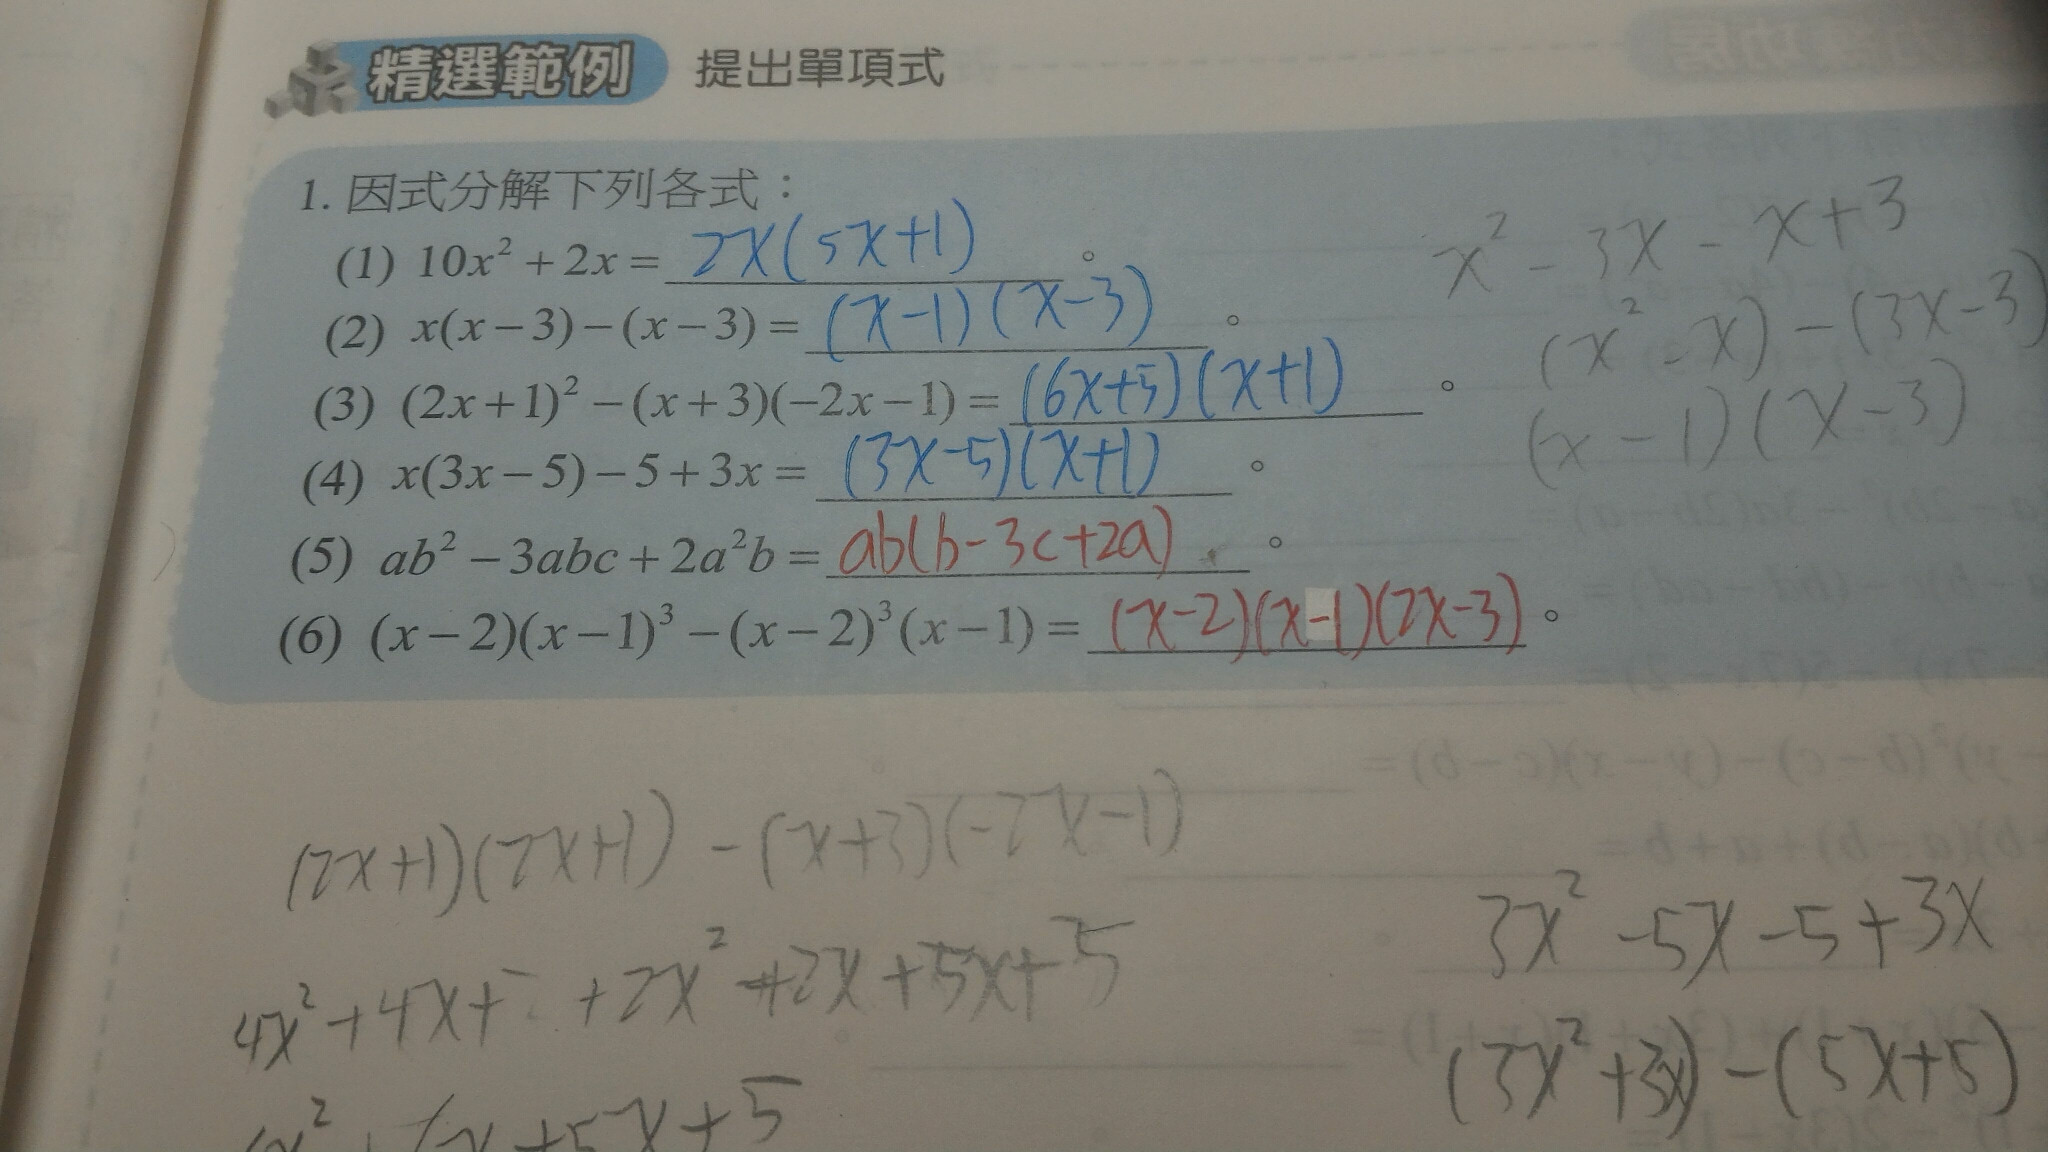 精選範例 提出單項式
1. 因式分解下列各式：
(1) 10x² + 2x = 2x(5x+1) 。
(2) x(x－3)－(x－3) = (x-1)(x-3) 。
(3) (2x+1)²－(x+3)(－2x－1) = (6x+5)(x+1) 。
(4) x(3x－5)－5+3x = (3x-5)(x+1) 。
(5) ab²－3abc+2a²b = ab(b-3c+2a) 。
(6) (x－2)(x－1)³－(x－2)³(x－1) = (x-2)(x-1)(2x-3) 。
x² - 3x - x+3
(x² - x) - (3x-3)
(x - 1)(x-3)
(2x+1)(2x+1) - (x+3)(-2x-1)
4x²+4x+ +2x²+2x+5x+5
3x² -5x -5+3x
(3x²+3x) - (5x+5)
+5x+5